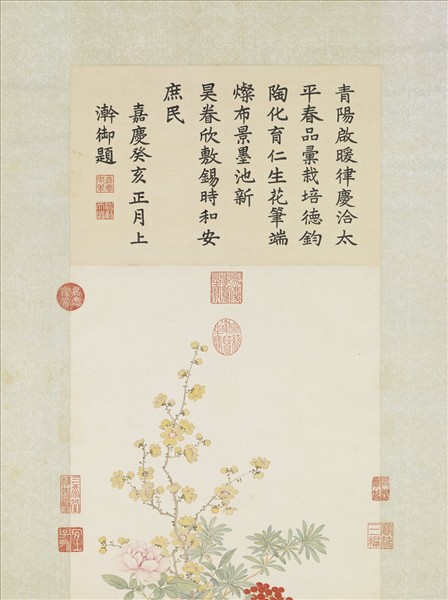 青陽啟暖律慶洽太
平春品彙栽培德鈞
陶化育仁生花筆端
燦布景墨池新
昊眷欣敷錫時和安
庶民
嘉慶癸亥正月上
澣御題